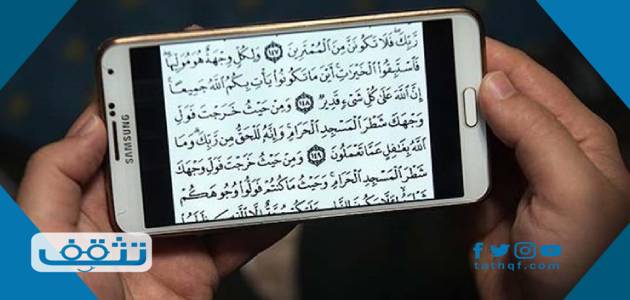 رَّبِّكَ فَلَا تَكُونَنَّ مِنَ الْمُمْتَرِينَ ١٤٧ وَلِكُلٍّ وِجْهَةٌ هُوَ مُوَلِّيهَا
فَاسْتَبِقُوا الْخَيْرَاتِ أَيْنَ مَا تَكُونُوا يَأْتِ بِكُمُ اللَّهُ جَمِيعًا
إِنَّ اللَّهَ عَلَىٰ كُلِّ شَيْءٍ قَدِيرٌ ١٤٨ وَمِنْ حَيْثُ خَرَجْتَ فَوَلِّ
وَجْهَكَ شَطْرَ الْمَسْجِدِ الْحَرَامِ وَإِنَّهُ لَلْحَقُّ مِن رَّبِّكَ وَمَا
اللَّهُ بِغَافِلٍ عَمَّا تَعْمَلُونَ ١٤٩ وَمِنْ حَيْثُ خَرَجْتَ فَوَلِّ وَجْهَكَ
شَطْرَ الْمَسْجِدِ الْحَرَامِ وَحَيْثُ مَا كُنتُمْ فَوَلُّوا وُجُوهَكُمْ
SAMSUNG
تثقف
tathqf.com